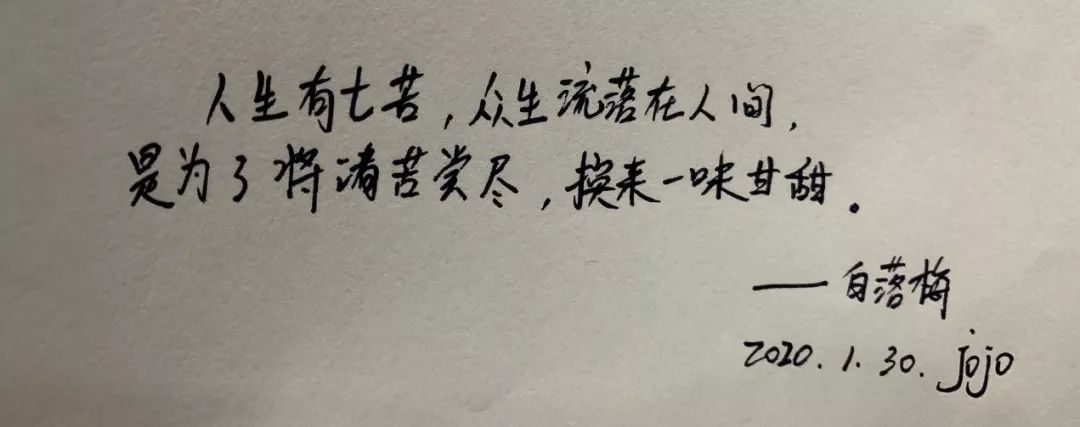 人生有七苦,众生流落在人间,
是为了将诸苦尝尽,换来一味甘甜.
——白落梅
2020.1.30. jojo